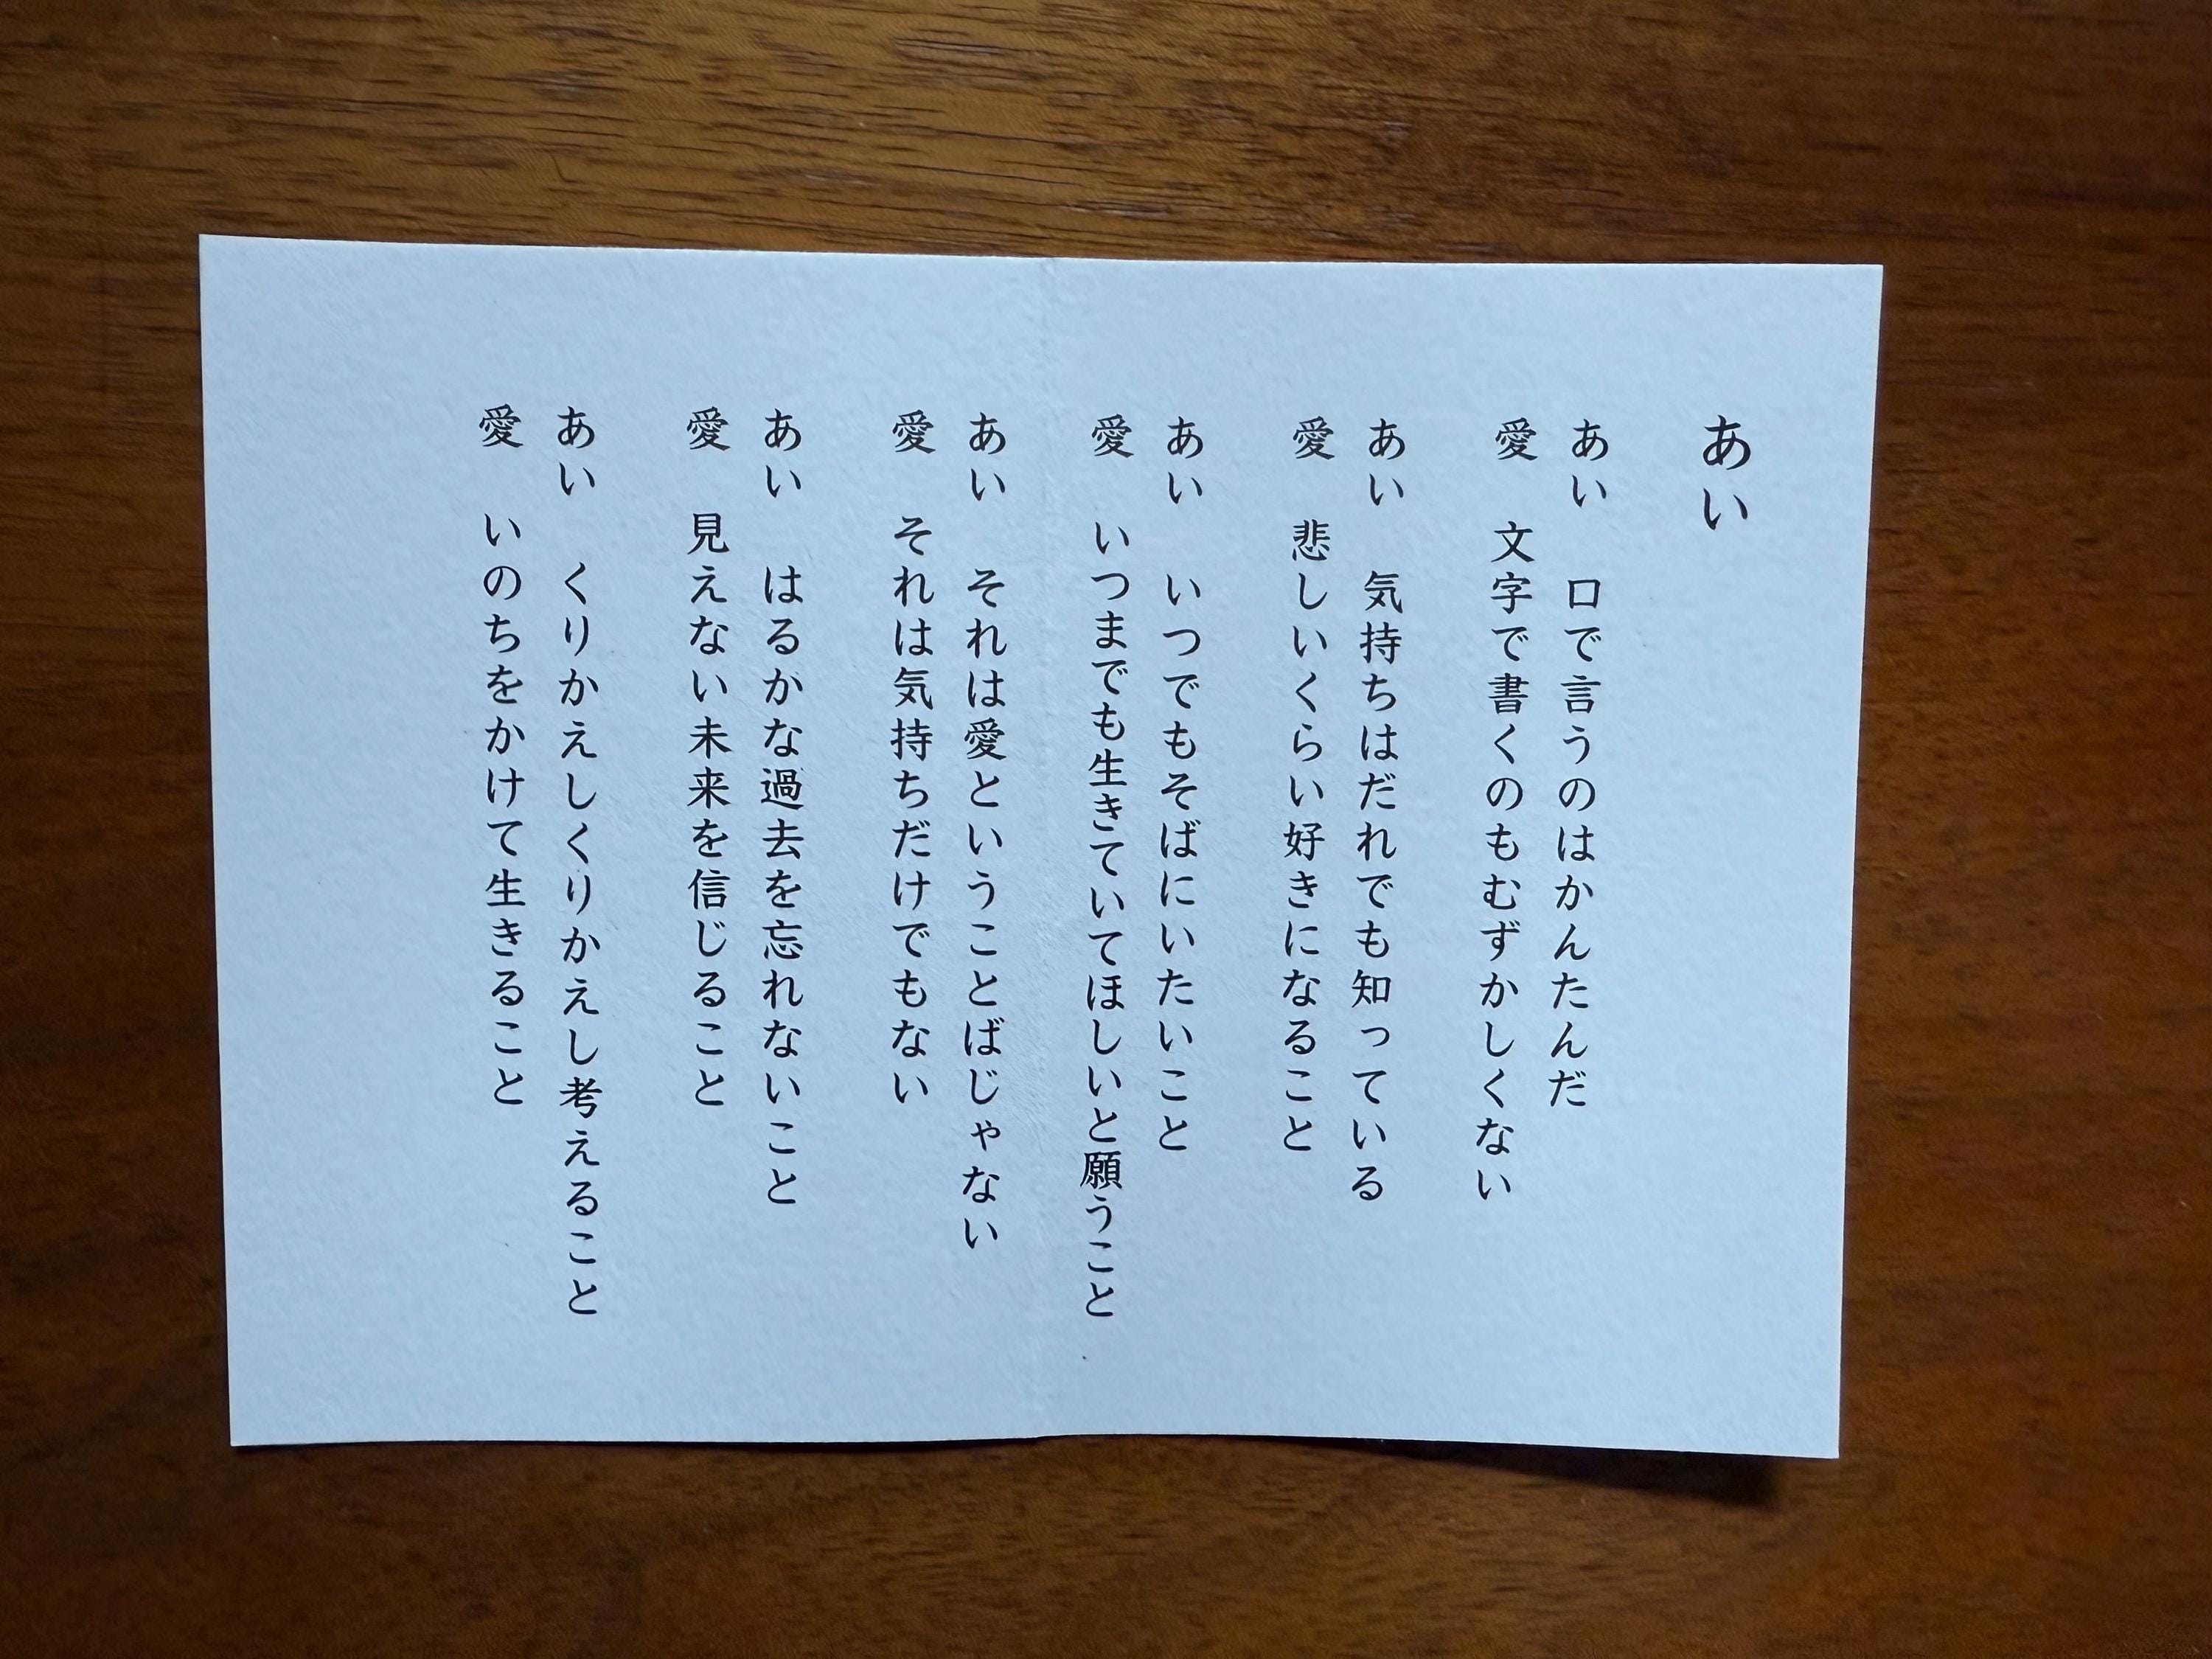 あい
あい　口で言うのはかんたんだ
愛　文字で書くのもむずかしくない
あい　気持ちはだれでも知っている
愛　悲しいくらい好きになること
あい　いつでもそばにいたいこと
愛　いつまでも生きていてほしいと願うこと
あい　それは愛ということばじゃない
愛　それは気持ちだけでもない
あい　はるかな過去を忘れないこと
愛　見えない未来を信じること
あい　くりかえしくりかえし考えること
愛　いのちをかけて生きること